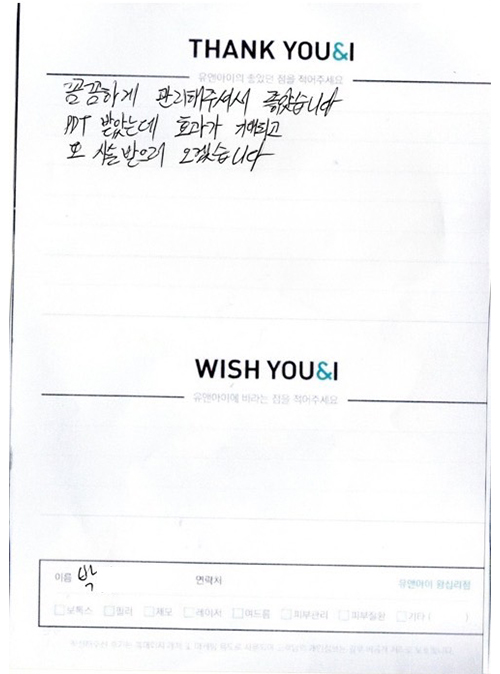 THANK YOU&I
유앤아이의 좋았던 점을 적어주세요
꼼꼼하게 관리해주셔서 좋았습니다
PDT 받았는데 효과가 기대되고
또 시술받으러 오겠습니다
WISH YOU&I
유앤아이에 바라는 점을 적어주세요
이름 박 연락처 유앤아이 왕십리점
보톡스 필러 제모 레이저 여드름 피부관리 피부질환 기타 ( )